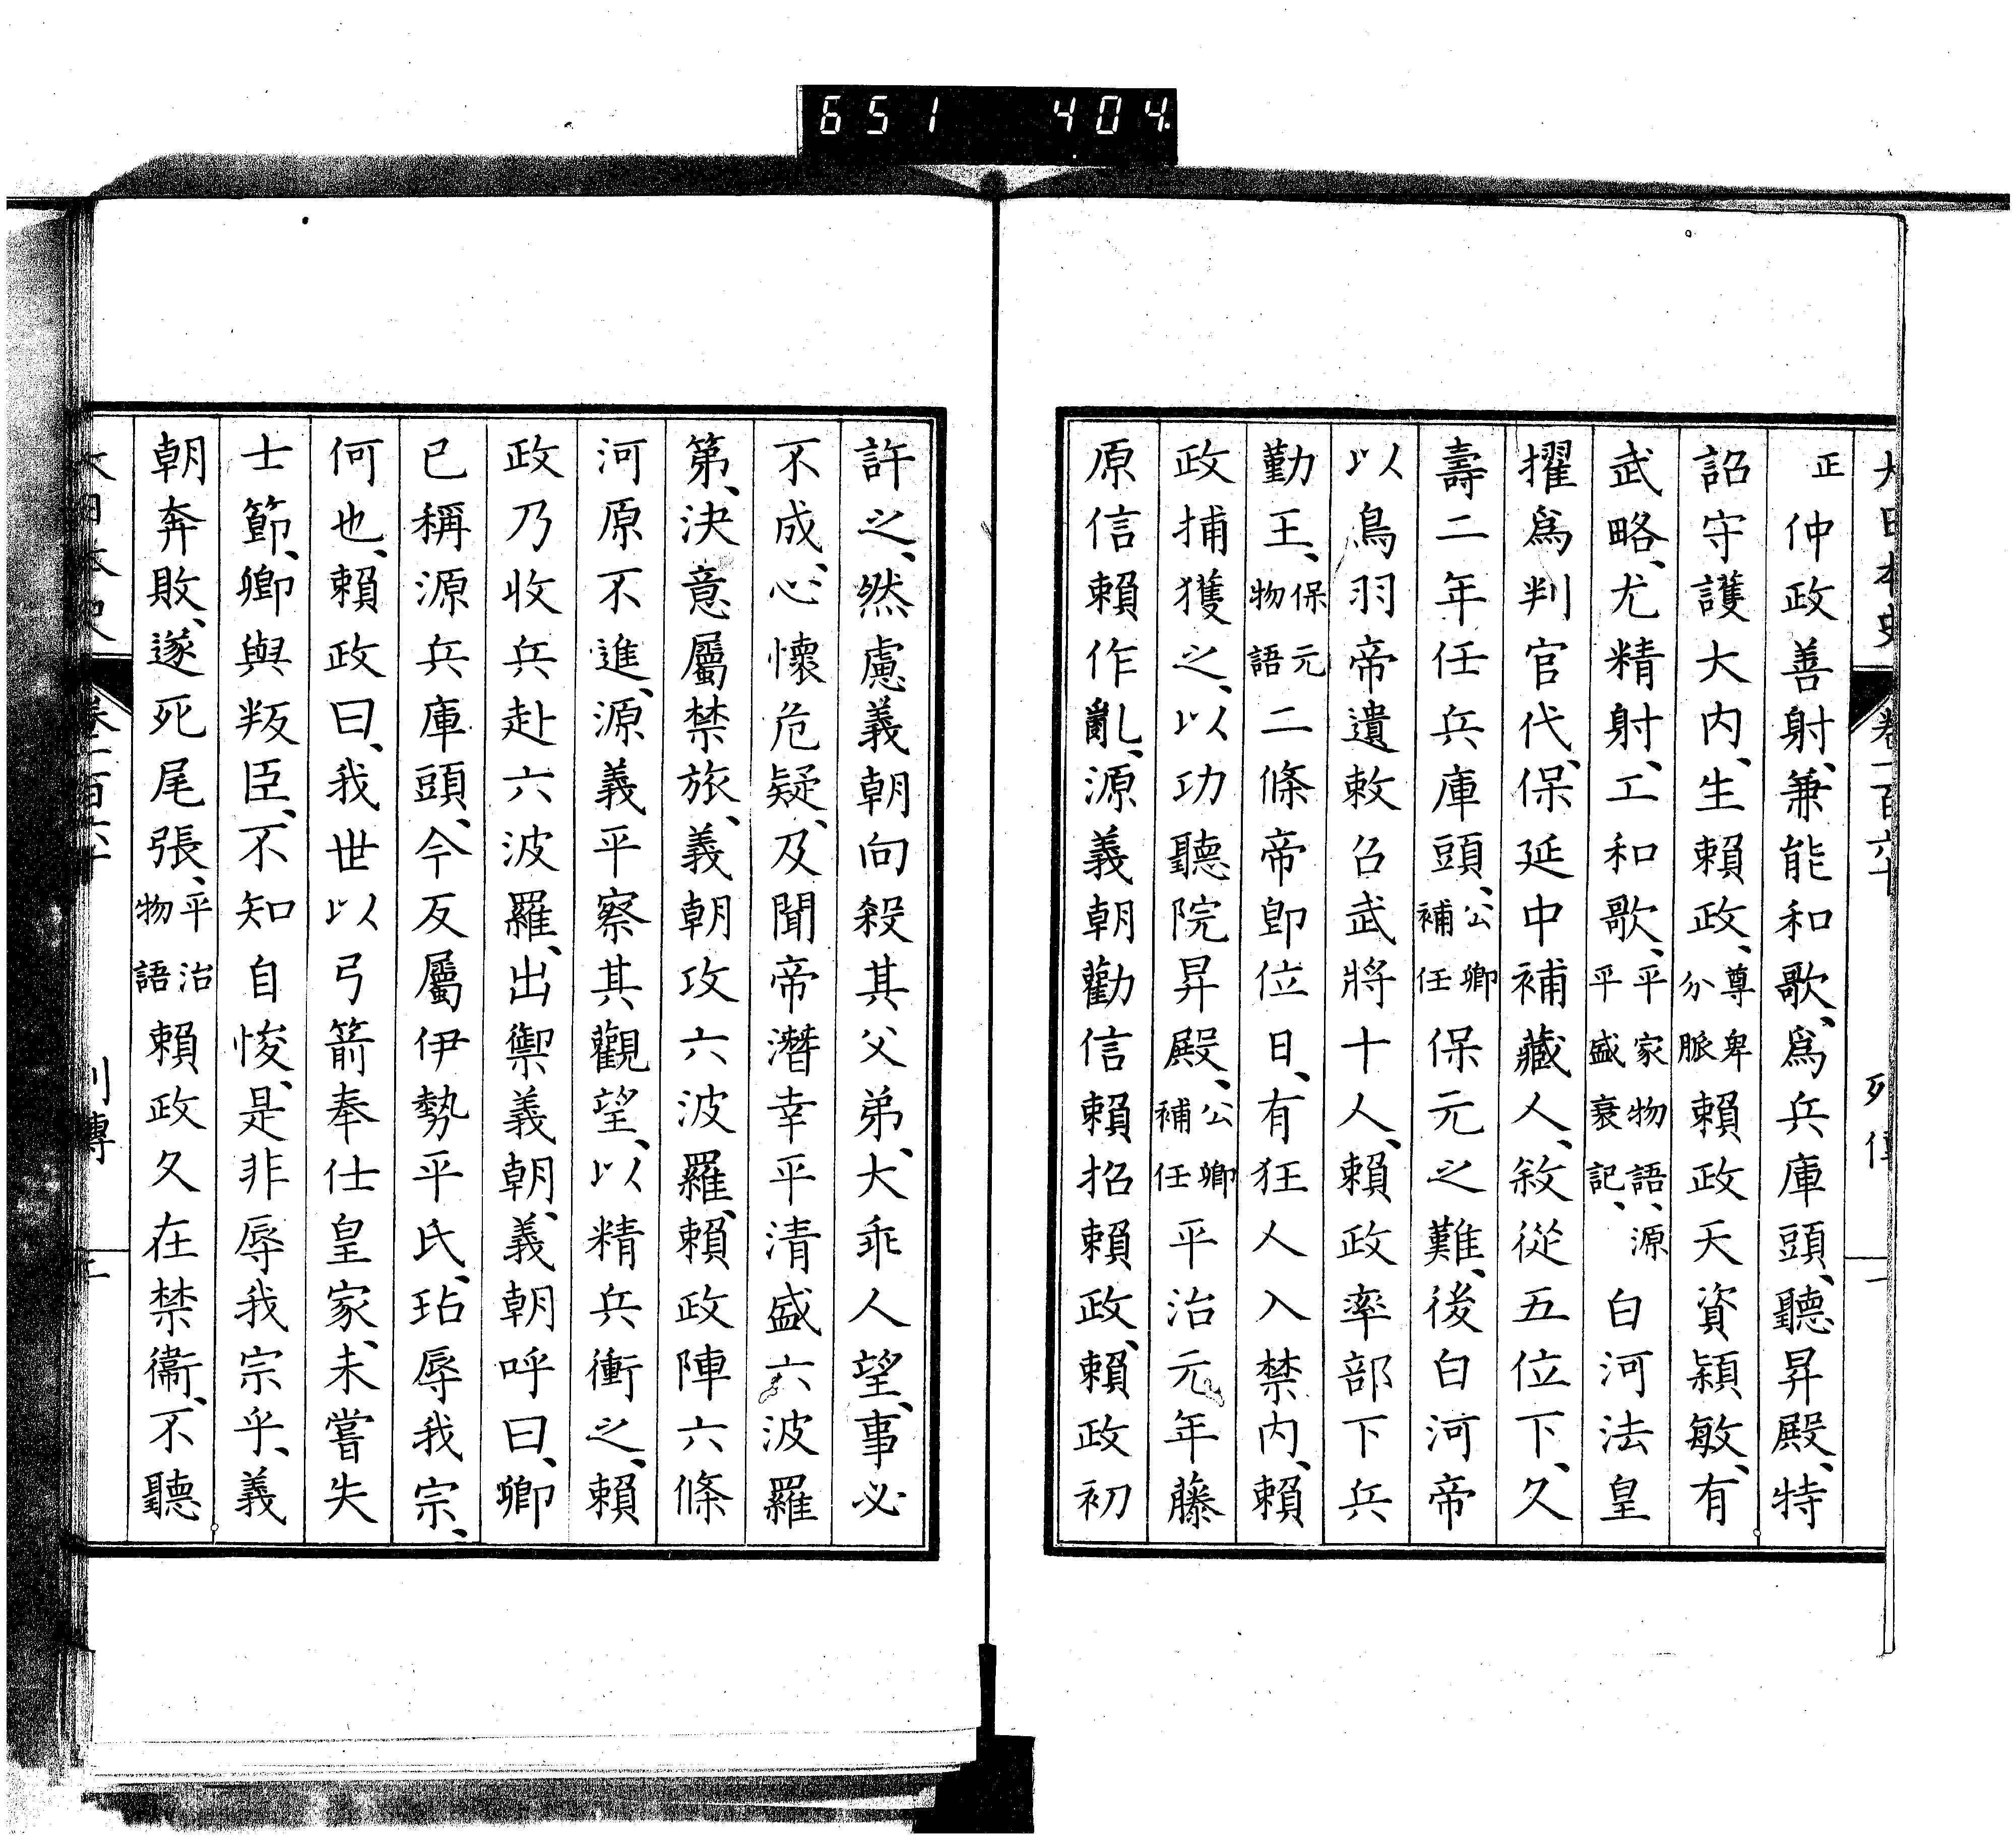 651 404
大日本史 卷一百六十 列傳 一
正仲政善射、兼能和歌、爲兵庫頭、聽昇殿、特
詔守護大内、生賴政、尊卑分脈賴政天資穎敏、有
武略、尤精射、工和歌、平家物語、源平盛衰記、白河法皇
擢爲判官代、保延中補藏人、敘從五位下、久
壽二年任兵庫頭、公卿補任保元之難、後白河帝
以鳥羽帝遺敕召武將十人、賴政率部下兵
勤王、保元物語二條帝卽位日、有狂人入禁内、賴
政捕獲之、以功聽院昇殿、公卿補任平治元年藤
原信賴作亂、源義朝勸信賴招賴政、賴政初
許之、然慮義朝向殺其父弟、大乖人望、事必
不成、心懷危疑、及聞帝潛幸平淸盛六波羅
第、決意屬禁旅、義朝攻六波羅、賴政陣六條
河原不進、源義平察其觀望、以精兵衝之、賴
政乃收兵赴六波羅、出禦義朝、義朝呼曰、卿
已稱源兵庫頭、今反屬伊勢平氏、玷辱我宗、
何也、賴政曰、我世以弓箭奉仕皇家、未嘗失
士節、卿與叛臣、不知自悛、是非辱我宗乎、義
朝奔敗、遂死尾張、平治物語賴政久在禁衞、不聽
大日本史 卷一百六十 列傳 二